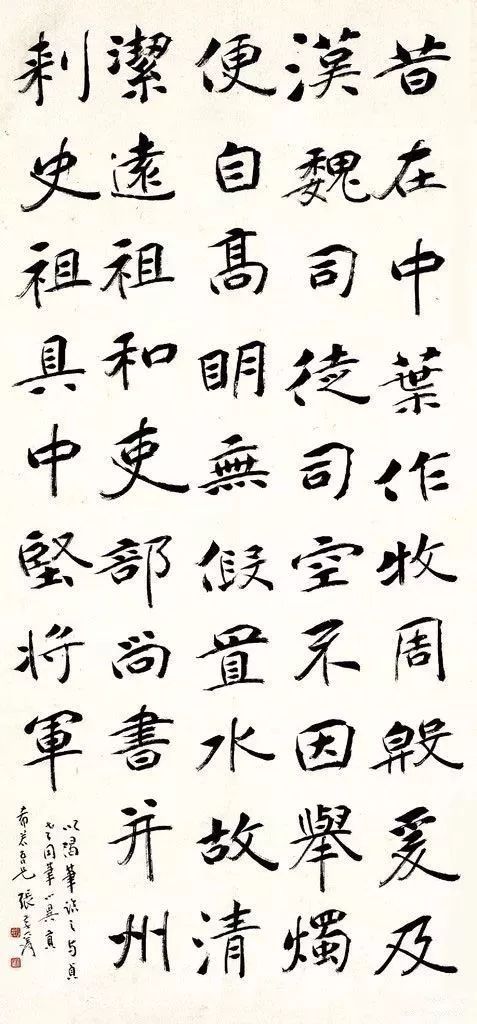 昔在中葉作牧周殷爰及
漢魏司徒司空不因舉燭
便自高明無假置水故清
潔遠祖和吏部尚書并州
刺史祖具中堅將軍
以渴筆臨之與真
同筆異
張